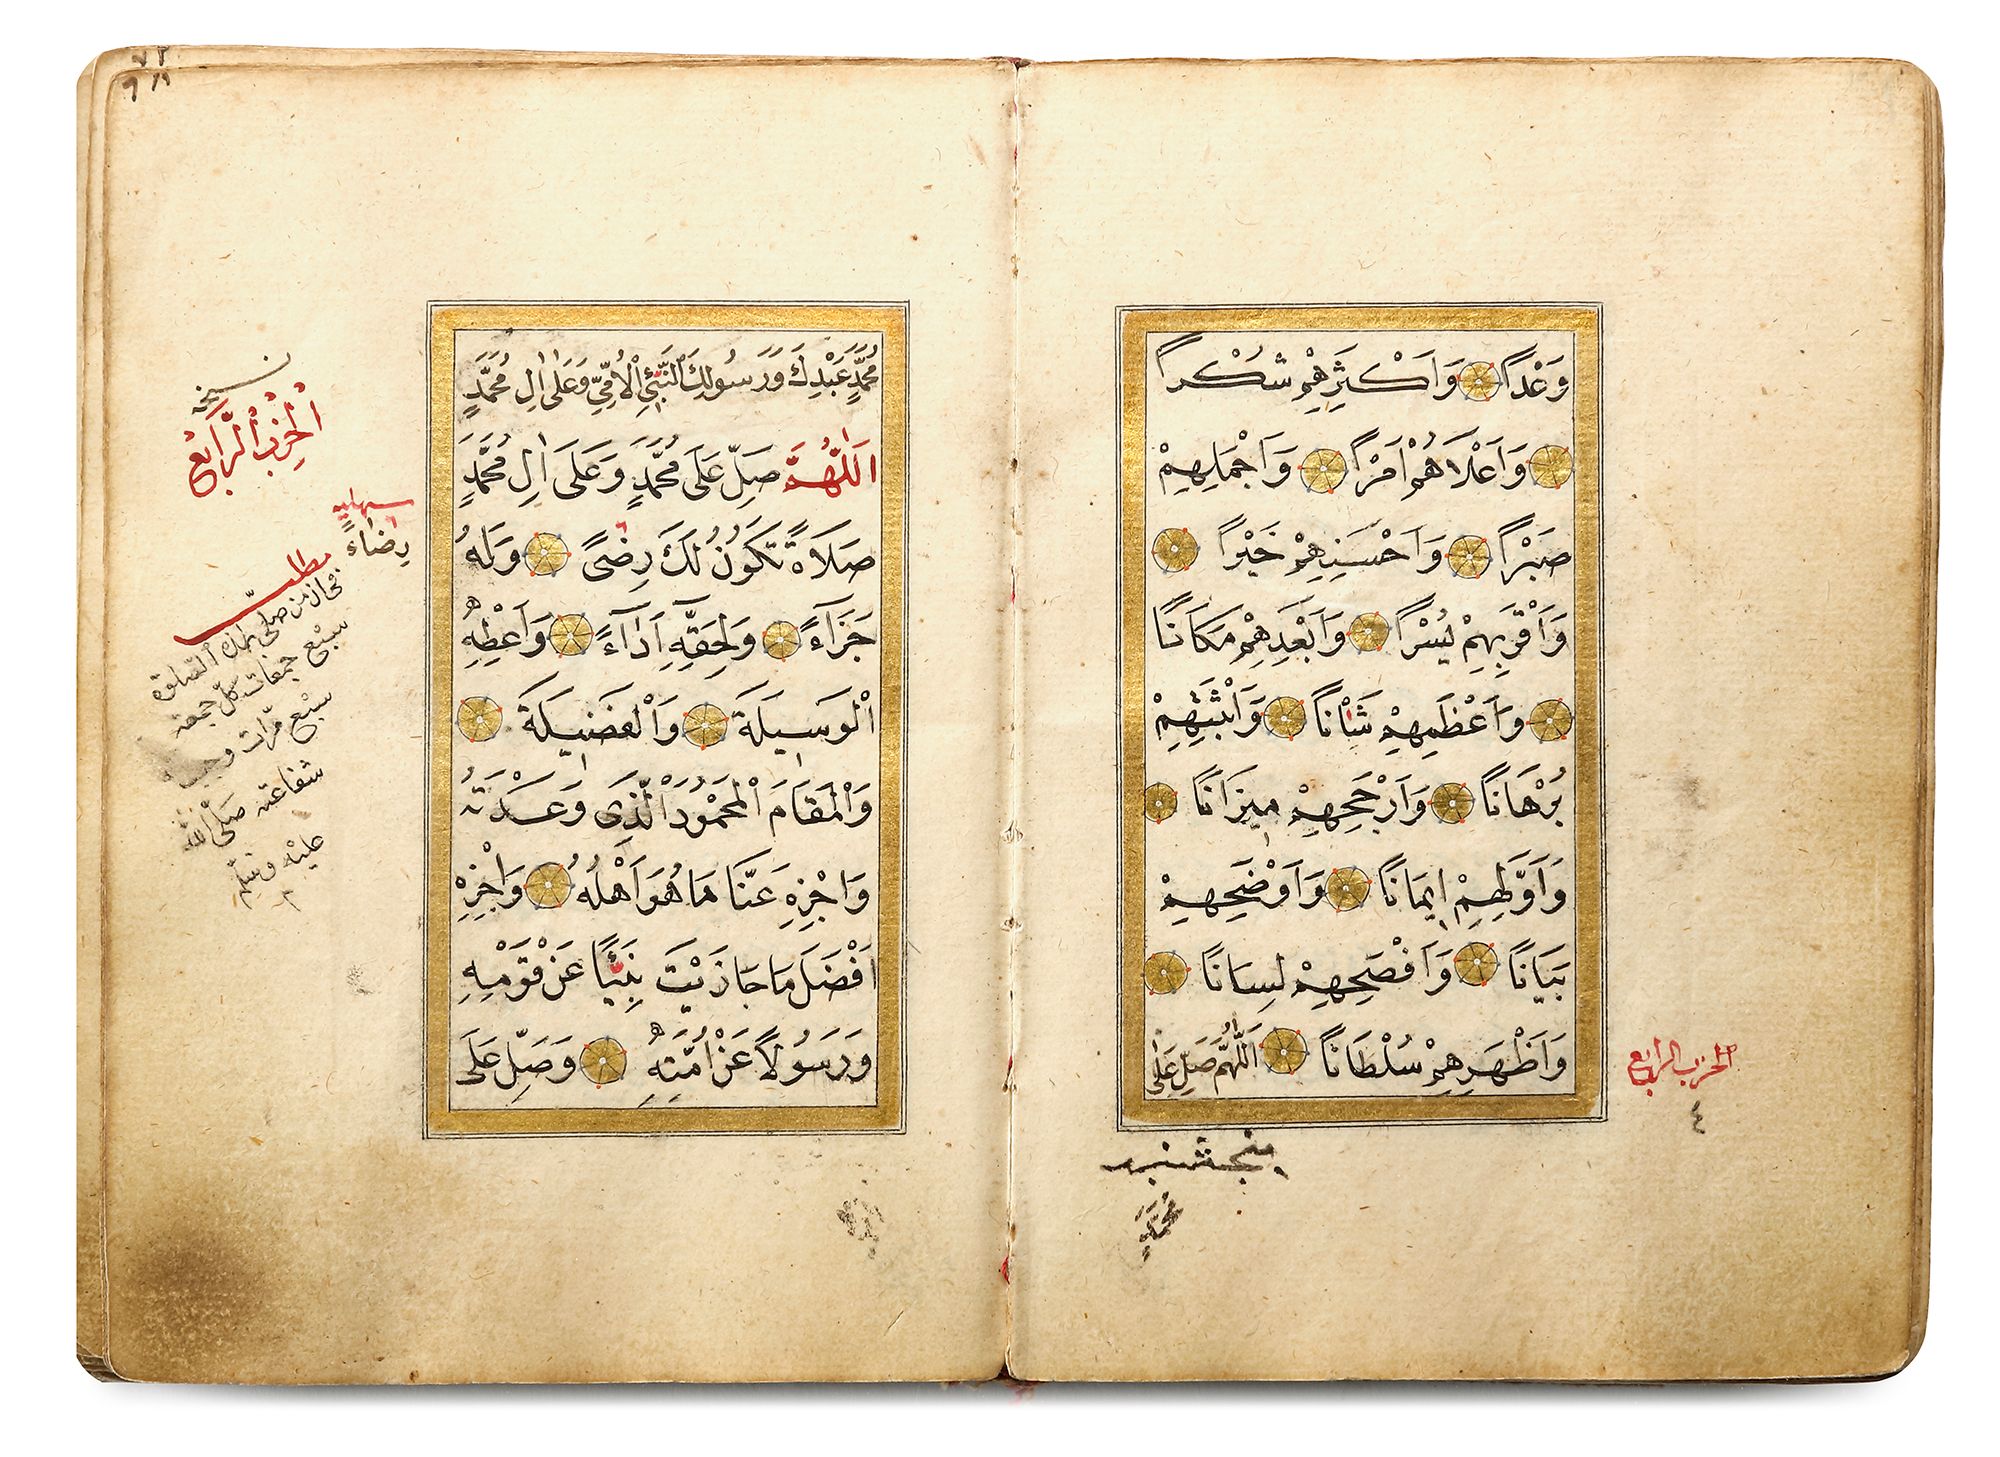 وَعْدًا وَاَكْثَرِهِمْ شُكْرًا
وَاَعْلَاهُمْ اَمْرًا وَاَجْمَلِهِمْ
صَبْرًا وَاَحْسَنِهِمْ خَيْرًا
وَاَقْرَبِهِمْ يُسْرًا وَاَبْعَدِهِمْ مَكَانًا
وَاَعْظَمِهِمْ شَاْنًا وَاَثْبَتِهِمْ
بُرْهَانًا وَاَرْجَحِهِمْ مِيزَانًا
وَاَوَّلِهِمْ اِيمَانًا وَاَوْضَحِهِمْ
بَيَانًا وَاَفْصَحِهِمْ لِسَانًا
وَاَظْهَرِهِمْ سُلْطَانًا اَللّٰهُمَّ صَلِّ عَلٰى
الحزب الرابع
٤
پنجشنبه
مُحَمَّدٍ
مُحَمَّدٍ عَبْدِكَ وَرَسُولِكَ النَّبِيِّ الْاُمِّيِّ وَعَلٰى اٰلِ مُحَمَّدٍ
اَللّٰهُمَّ صَلِّ عَلَى مُحَمَّدٍ وَعَلَى اٰلِ مُحَمَّدٍ
صَلَاةً تَكُونُ لَكَ رِضًى وَلَهُ
جَزَاءً وَلِحَقِّهِ اَدَاءً وَاَعْطِهِ
الْوَسِيلَةَ وَالْفَضِيلَةَ
وَالْمَقَامَ الْمَحْمُودَ الَّذِى وَعَدْتَهُ
وَاجْزِهِ عَنَّا مَا هُوَ اَهْلُهُ وَاجْزِهِ
اَفْضَلَ مَا جَازَيْتَ نَبِيًّا عَنْ قَوْمِهِ
وَرَسُولًا عَنْ اُمَّتِهِ وَصَلِّ عَلَى
نسخه
الْحِزْبُ الرَّابِعُ
سهليه
رِضَاءً
مطلب
من صلى بهذه الصلوة
سبع جمعات كلّ جمعه
سبع مرّات وجب
شفاعته صلّى الله
عليه وسلم